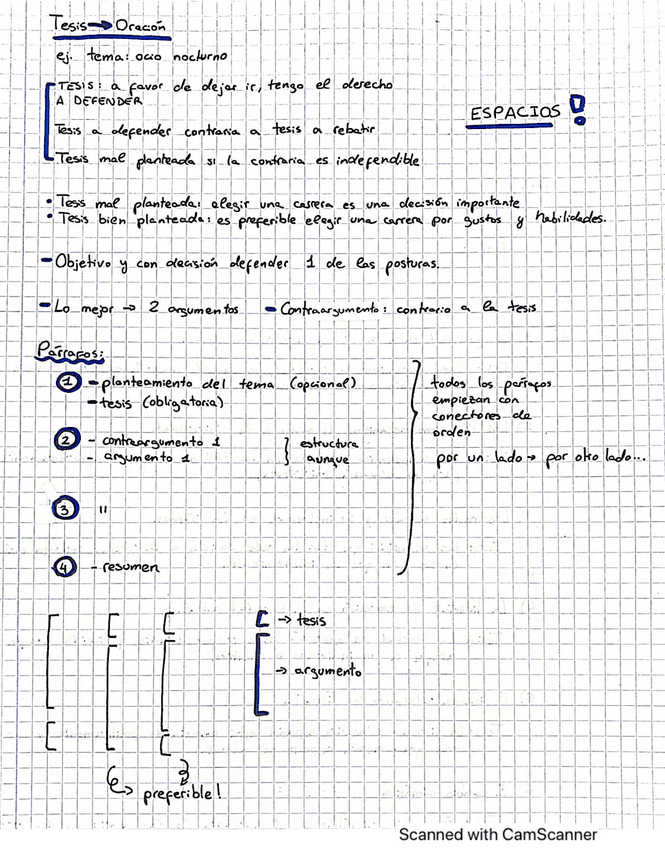 Tesis → Oración
ej. tema: ocio nocturno
TESIS: a favor de dejar ir, tengo el derecho
A DEFENDER
ESPACIOS !
Tesis a defender contraria a tesis a rebatir
Tesis mal planteada si la contraria es indefendible
• Tesis mal planteada: elegir una carrera es una decisión importante
• Tesis bien planteada: es preferible elegir una carrera por gustos y habilidades.
- Objetivo y con decisión defender 1 de las posturas.
- Lo mejor → 2 argumentos - Contraargumento: contrario a la tesis
Párrafos:
1 - planteamiento del tema (opcional)
- tesis (obligatoria)
2 - contraargumento 1
- argumento 1
estructura
aunque
3 "
4 - resumen
todos los párrafos
empiezan con
conectores de
orden
por un lado → por otro lado...
→ tesis
→ argumento
→ preferible!
Scanned with CamScanner